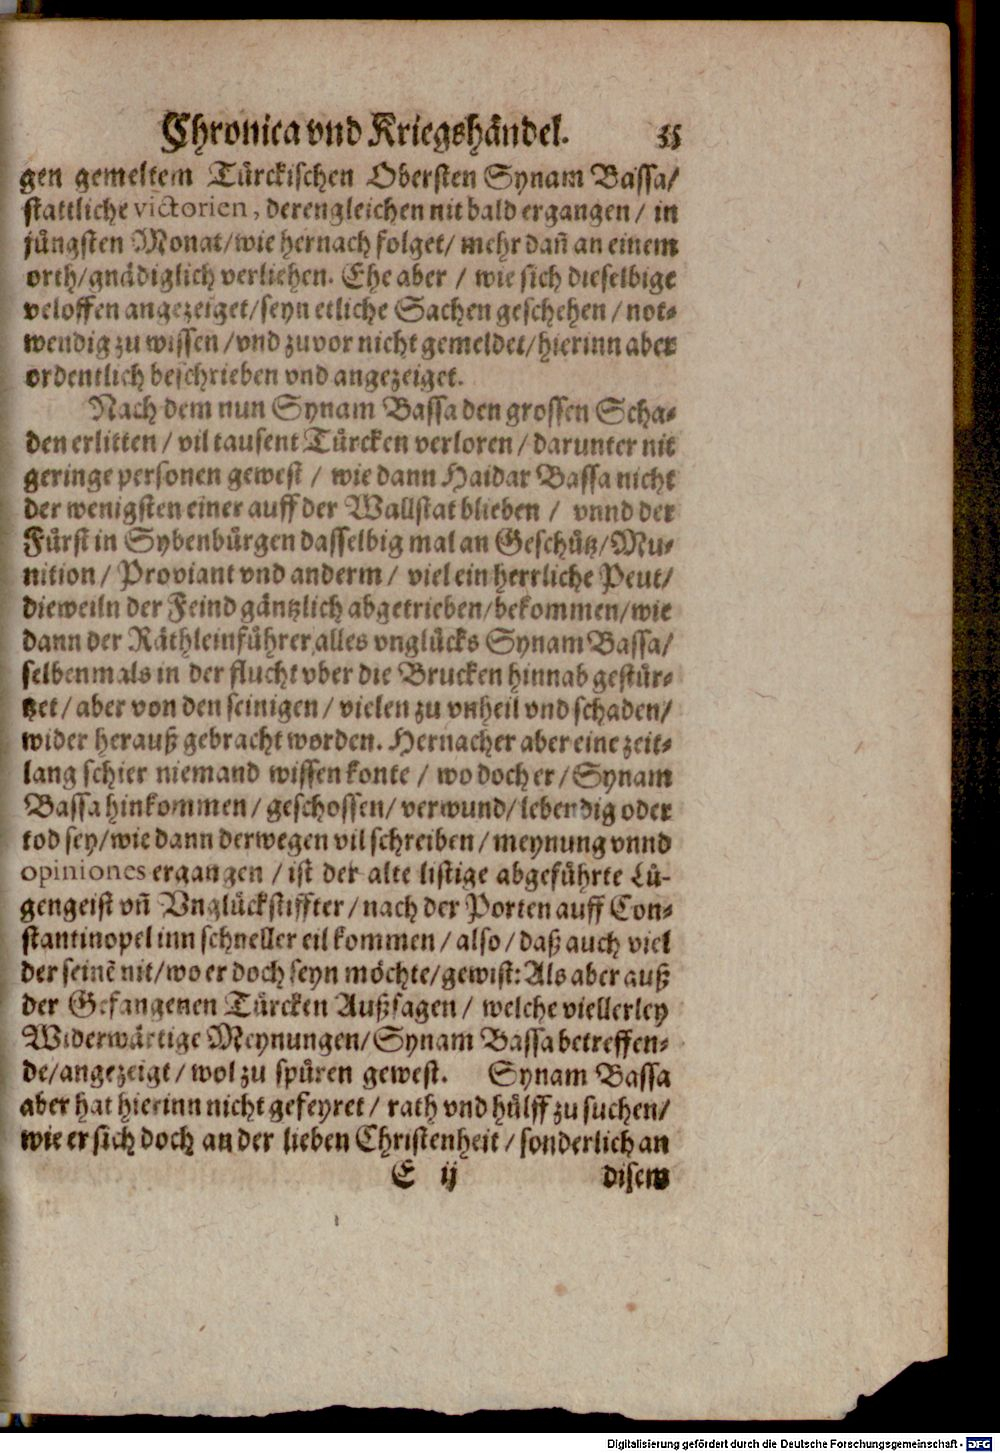 Chronica vnd Kriegshändel. 35
gen gemeltem Türckischen Obersten Synam Bassa/
stattliche victorien, derengleichen nit bald ergangen / in
jüngsten Monat/wie hernach folget/ mehr dañ an einem
orth/gnädiglich verliehen. Ehe aber / wie sich dieselbige
veloffen angezeiget/seyn etliche Sachen geschehen / not-
wendig zu wissen /vnd zuvor nicht gemeldet/hierinn aber
ordentlich beschrieben vnd angezeiget.
Nach dem nun Synam Bassa den grossen Scha-
den erlitten / vil tausent Türcken verloren / darunter nit
geringe personen gewest / wie dann Haidar Bassa nicht
der wenigsten einer auff der Wallstat blieben / vnnd der
Fürst in Sybenbürgen dasselbig mal an Geschütz/Mu-
nition / Proviant vnd anderm / viel ein herrliche Peut/
dieweiln der Feind gäntzlich abgetrieben/bekommen/wie
dann der Räthleinführer alles vnglücks Synam Bassa/
selbenmals in der flucht vber die Brucken hinnab gestür-
tzet / aber von den seinigen / vielen zu vnheil vnd schaden/
wider herauß gebracht worden. Hernacher aber eine zeit-
lang schier niemand wissen konte / wo doch er / Synam
Bassa hinkommen / geschossen/ verwund/ lebendig oder
tod sey/wie dann derwegen vil schreiben / meynung vnnd
opiniones ergangen / ist der alte listige abgeführte Lü-
gengeist vñ Vnglückstiffter / nach der Porten auff Con-
stantinopel inn schneller eil kommen / also / daß auch viel
der seinẽ nit/wo er doch seyn möchte/gewist: Als aber auß
der Gefangenen Türcken Außsagen / welche viellerley
Widerwärtige Meynungen/ Synam Bassa betreffen-
de/angezeigt / wol zu spüren gewest. Synam Bassa
aber hat hierinn nicht gefeyret / rath vnd hülff zu suchen/
wie er sich doch an der lieben Christenheit / sonderlich an
E ij disem
Digitalisierung gefördert durch die Deutsche Forschungsgemeinschaft - DFG